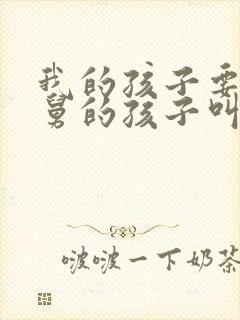 我的孩子要
舅的孩子叫
啵啵一下奶茶